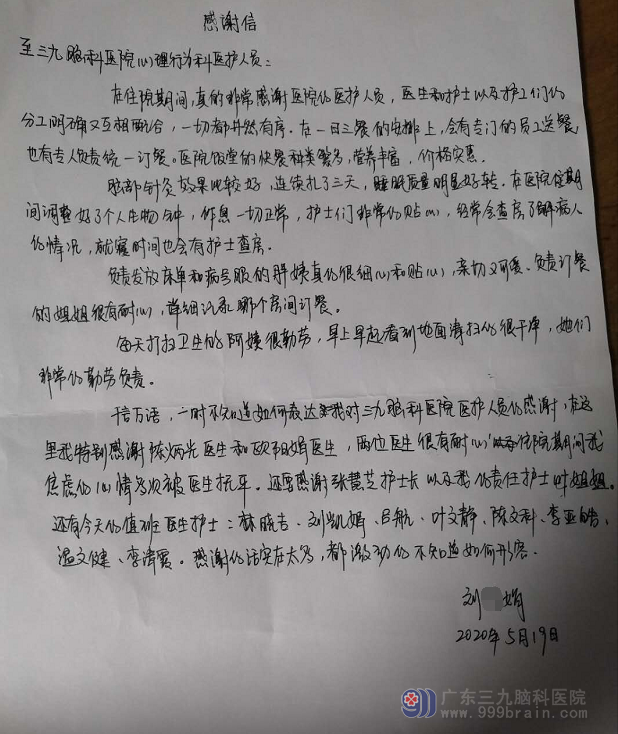 感谢信
至三九脑科医院心理行为科医护人员：
在住院期间，真的非常感谢医院的医护人员，医生和护士以及护工们的
分工明确又互相配合，一切都井然有序。在一日三餐的安排上，会有专门的员工送餐，
也有专人负责统一订餐。医院饭堂的快餐种类繁多，营养丰富，价格实惠。
脑部针灸效果比较好，连续扎了三天，睡眠质量明显好转。在医院住期
间调整好了个人生物钟，作息一切正常，护士们非常的贴心，经常会查房了解病人
的情况，就寝时间也会有护士查房。
负责发放床单和病号服的胖姨真的很细心和贴心，亲切又可爱。负责订餐
的姐姐很有耐心，详细记录哪个房间订餐。
每天打扫卫生的阿姨很勤劳，早上早起看到地面清扫的很干净，她们
非常的勤劳负责。
千言万语，一时不知道如何表达我对三九脑科医院医护人员的感谢，在这
里我特别感谢陈炳光医生和欧阳娟医生，两位医生很有耐心，住院期间我
焦虑的心情多次被医生抚平。还要感谢张慧芝护士长以及我的责任护士叶姐姐。
还有今天的值班医生护士：林晓吉、刘凯嫦、吕航、叶文静、陈文科、李亚皓、
温文健、李清霞。感谢的话实在太多，都激动的不知道如何形容。
刘 娟
2020年5月19日
广东三九脑科医院
www.999brain.com